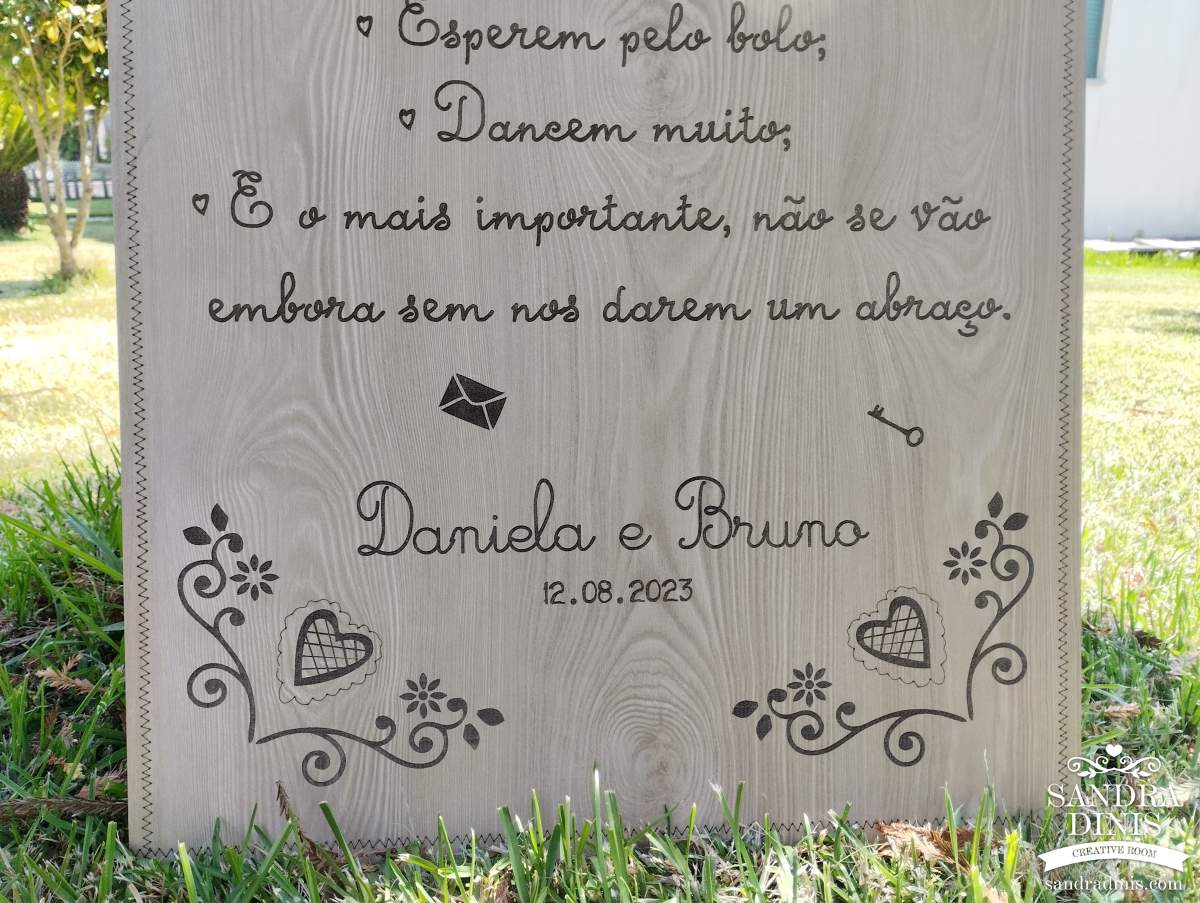 Esperem pelo bolo;
Dancem muito;
E o mais importante, não se vão
embora sem nos darem um abraço.
Daniela e Bruno
12.08.2023
SANDRA
DINIS
CREATIVE ROOM
sandradinis.com